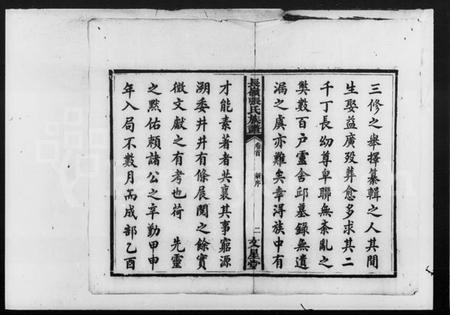 三修之舉擇纂輯之人其間
生娶益廣歿葬愈多求其二
千丁長幼尊卑聯無紊亂之
獘數百戶廬舍邱墓錄無遺
漏之虞亦難矣幸淂族中有
長嶺張氏族譜 卷首 新序 二 文星堂
才能素著者共襄其事窮源
溯委井井有條展閱之餘實
徵文獻之有考也荷 先靈
之黙佑頼諸公之辛勤甲申
年入局不數月而成部乙酉